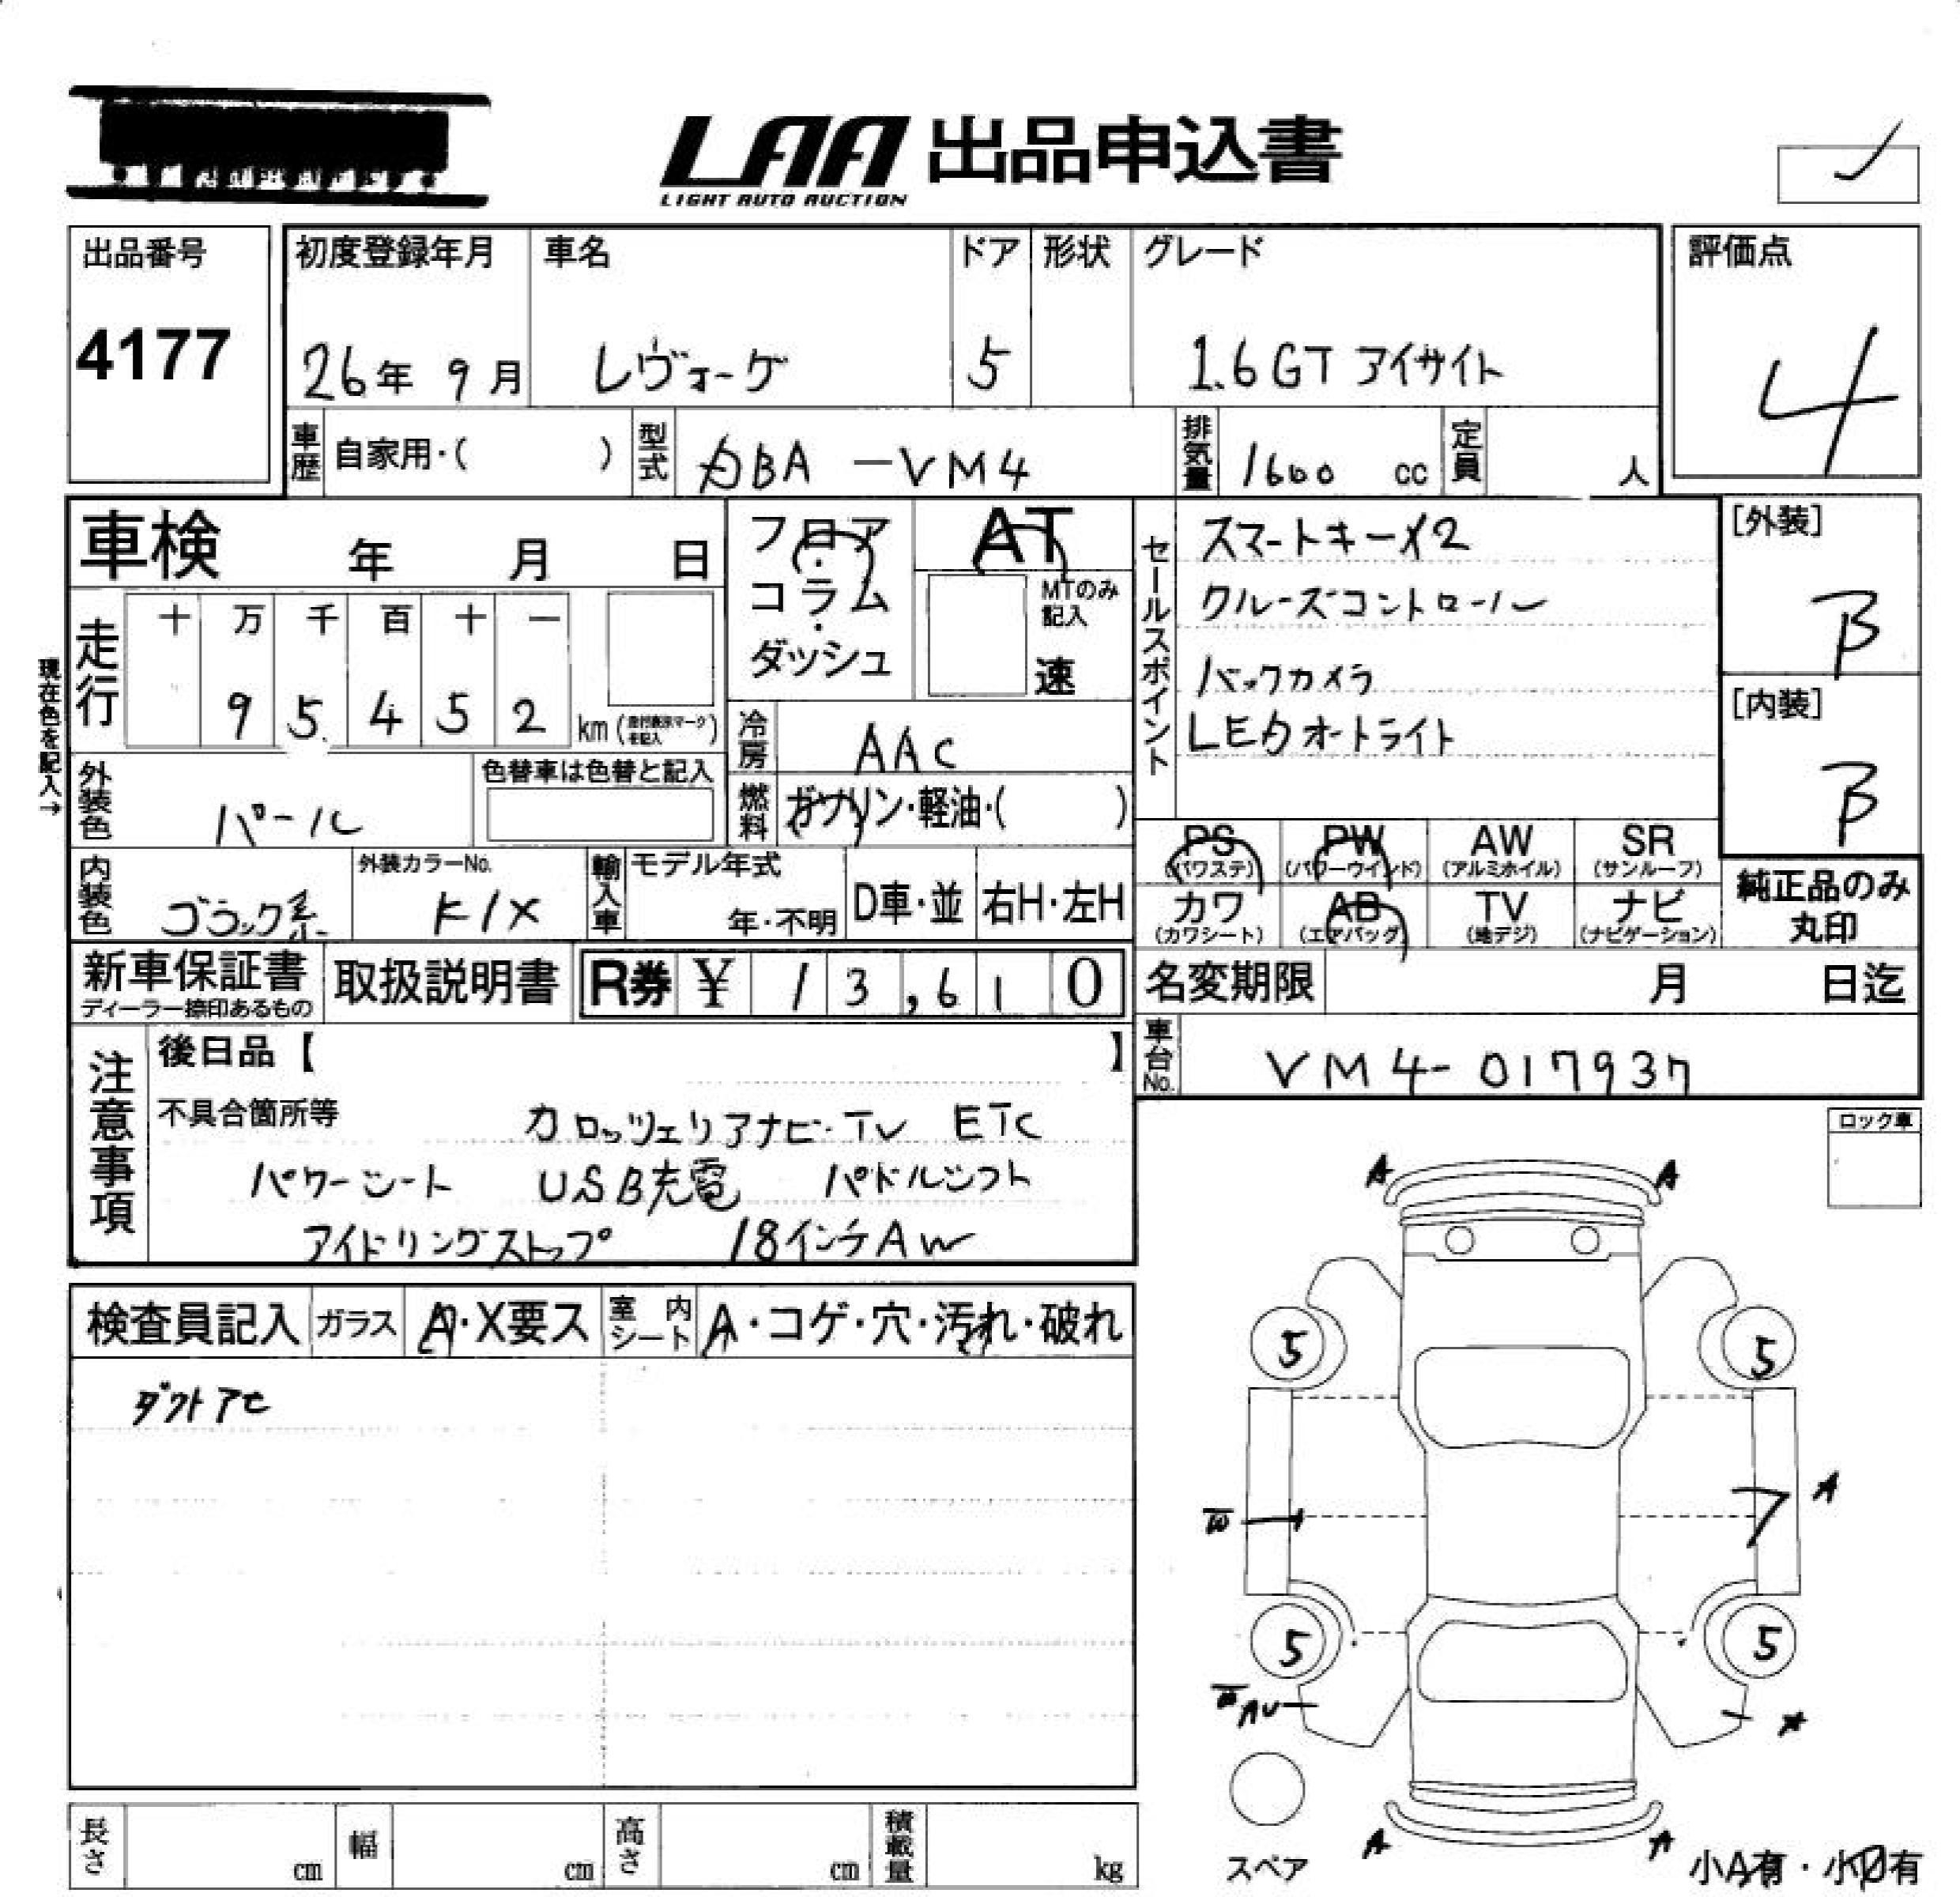 LAA 出品申込書
LIGHT AUTO AUCTION
出品番号
4177
初度登録年月
26年 9月
車名
レヴォーグ
ドア
5
形状
グレード
1.6GT アイサイト
評価点
4
車歴
自家用・( )
型式
DBA -VM4
排気量
1600 cc
定員
人
車検 年 月 日
フロア・コラム・ダッシュ
AT
MTのみ記入
速
セールスポイント
スマートキー×2
クルーズコントロール
バックカメラ
LEDオートライト
[外装]
B
[内装]
B
現在色を記入→
走行
十 万 千 百 十 一
9 5 4 5 2 km
冷房
AAC
外装色
パール
色替車は色替と記入
燃料
ガソリン・軽油・( )
PS (パワステ)
PW (パワーウインド)
AW (アルミホイル)
SR (サンルーフ)
カワ (カワシート)
AB (エアバッグ)
TV (地デジ)
ナビ (ナビゲーション)
純正品のみ丸印
内装色
ブラック系
外装カラーNo.
K1X
輸入車
モデル年式
年・不明
D車・並
右H・左H
新車保証書
ディーラー捺印あるもの
取扱説明書
R券 ¥ 13,610
名変期限 月 日迄
車台No.
VM4-017937
注意事項
後日品【 】
不具合箇所等
カロッツェリアナビ・TV ETC
パワーシート USB充電 パドルシフト
アイドリングストップ 18インチAW
ロック車
検査員記入
ガラス
A・X要ス
室内シート
A・コゲ・穴・汚れ・破れ
ダクトアセ
A A
5 5
A
W
5 5
AU
A A
スペア
小A有・小U有
長さ cm
幅 cm
高さ cm
積載量 kg